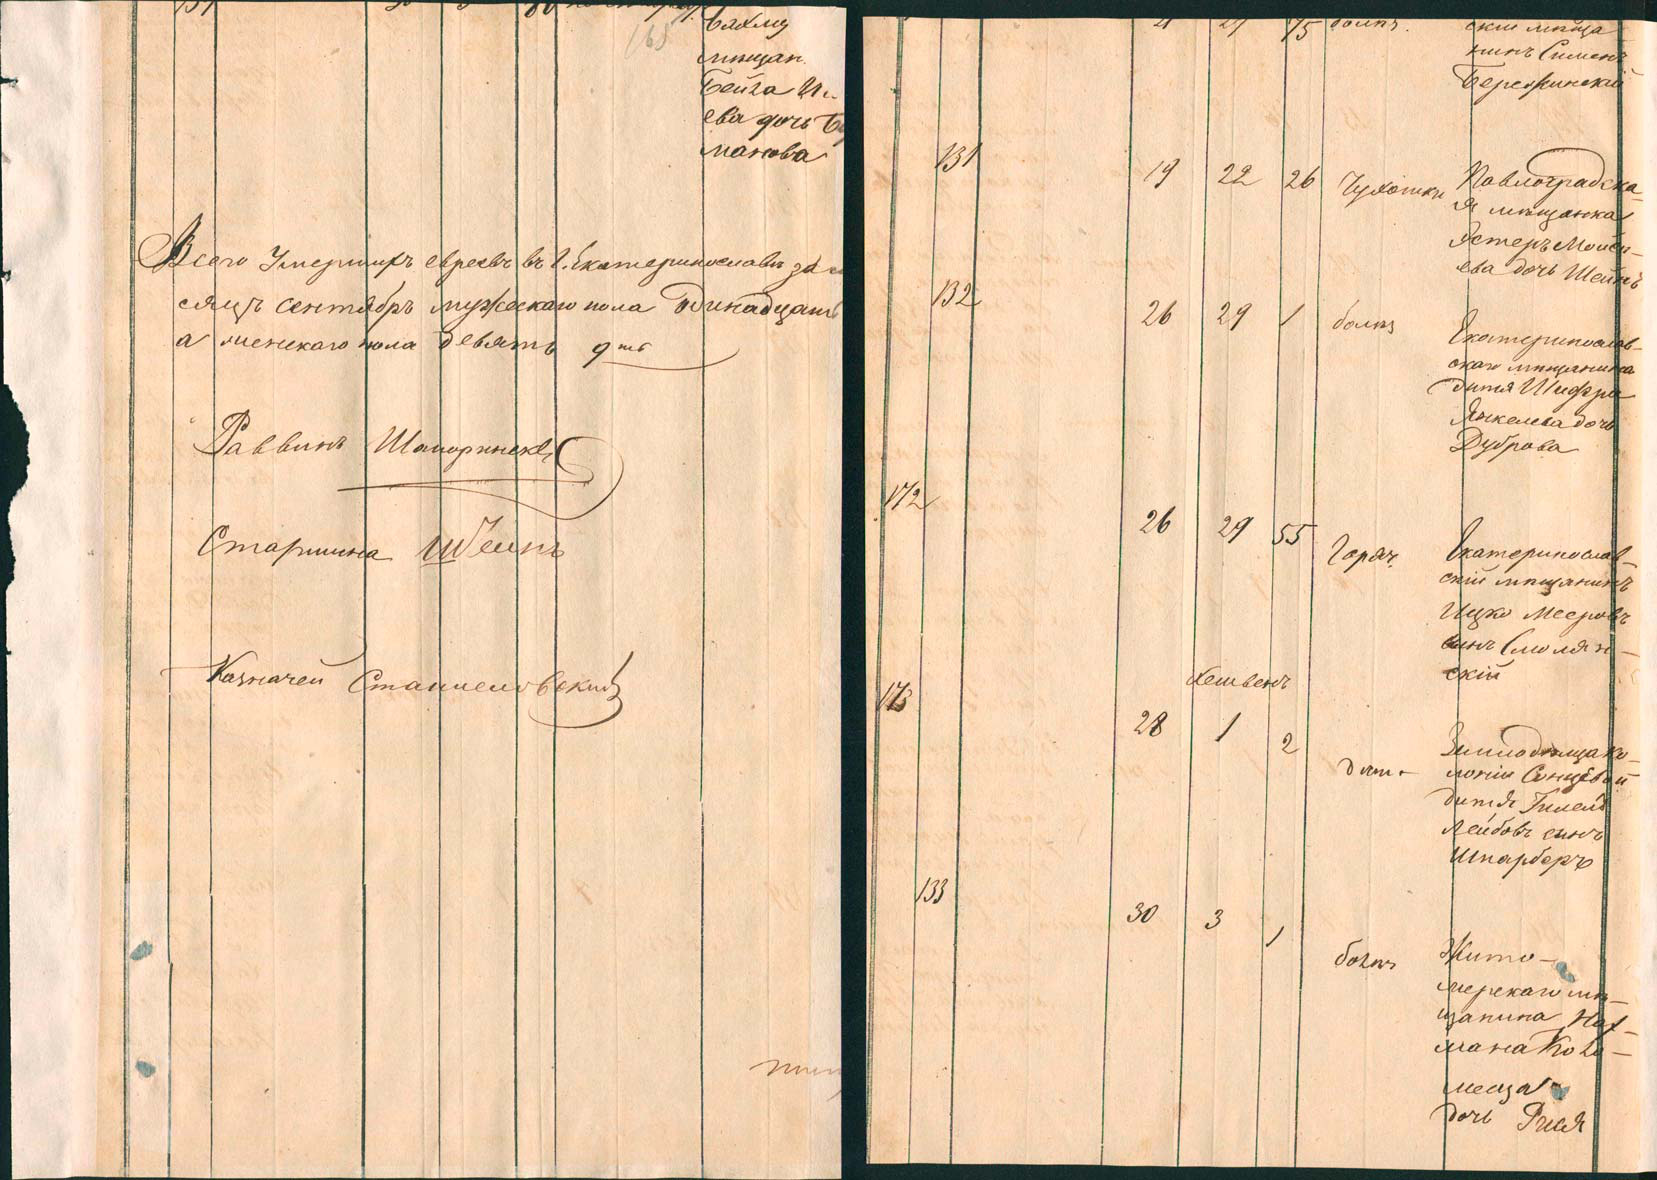 165
мѣщан.
Бейла
ева дочь
манова
Всего Умершихъ евреевъ въ Г. Екатеринославѣ за
сяцъ сентябръ мужескаго пола
а женскаго пола девять 9
Раввинъ Шапоринскі
Старшина Штейнъ
Казначей Станиславскій
21 75 болѣз.
скій мѣща
нинъ Симонъ
Бережинскій
131 19 22 26 Чухотки Павлоградска
я мѣщанка
Эстеръ Мойсе-
ева дочь Шейнъ
132 26 29 1 болѣз Екатеринослав-
скаго мѣщанина
дитя Шифра
Янкелева дочь
Дуброва
172 26 29 55 Горяч. Екатеринослав-
скій мѣщанинъ
Ицко Мееровъ
сынъ Смолян-
скій
Хешвенъ
173 28 1 2
колоніи
дитя Гилелъ
Лейбовъ сынъ
Шпарберъ
133 30 3 1 болѣз Жито-
мерскаго мѣ-
щанина Нах-
мана Коло-
меица
дочь Рися